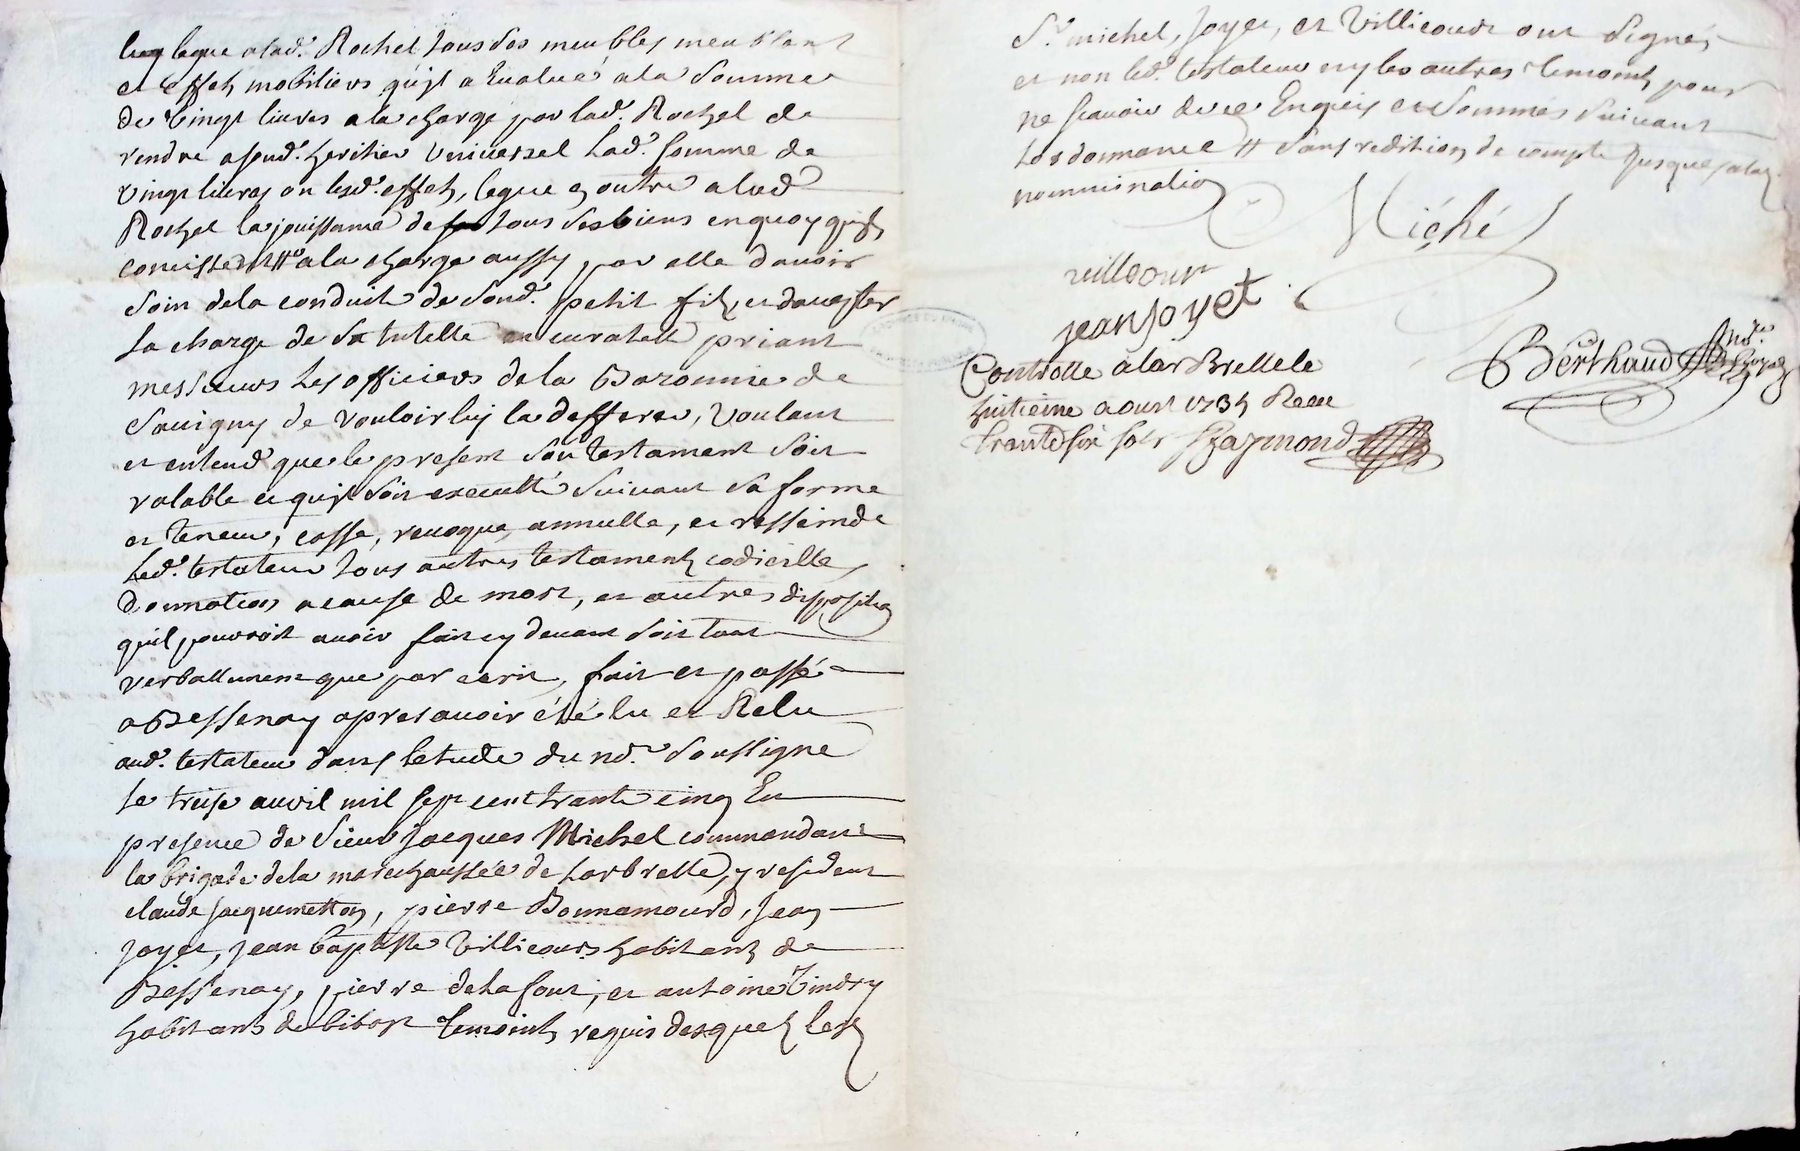 legue a lad.e Rochel tous ses meubles meublant
et effets mobiliers quil a Evalué a la Somme
de vingt livres a la charge par lad.e Rochel de
rendre a sond.t heritier universel lad.e somme de
vingt livres ou lesd.s effets, legue en outre a lad.e
Rochel la jouissance de tous ses biens en quoy quils
concistent a la charge aussy par elle d'avoir
soin de la conduite de sond.t petit fils, et daccepter
la charge de sa tutelle et curatelle priant
messieurs les officiers de la Baronnie de
Savigny de vouloir luy la defferer, voulant
et entend que le present son testament soit
valable et quil soit executté suivant sa forme
et teneur, casse, revoque, annulle, et ressinde
led.t testateur tous autres testaments codicille
donnation a cause de mort, et autres disposition
quil pourroit avoir fait cy devant soit tant
verballement que par ecrit, fait et passé
a Bessenay apres avoir été lu et Relu
aud.t testateur dans letude du no.re soussigne
le treise avril mil sept cent trante cinq En
presence de sieur Jacques Michel commandant
la brigade de la marechaussée de Larbrelle, y resident
claude Jacquemetton, pierre Bonnamourd, Jean
Joyet, jean baptiste Villicourt habitants de
Bessenay, pierre delafont, et antoine Vindry
habitants de bibost temoints requis desquels les
S.rs michel, Joyet, et Villicourt ont signés
et non led.t testateur ny les autres temoints pour
ne scavoir de ce Enquis et sommés suivant
Lordonnance // sans reddition de compte jusques a la
nommination
Miché
villicour
jean joyet
Berthaud
Controlle a lar Brelle le
huitieme aoust 1735 Receu
trante six sols Raymond